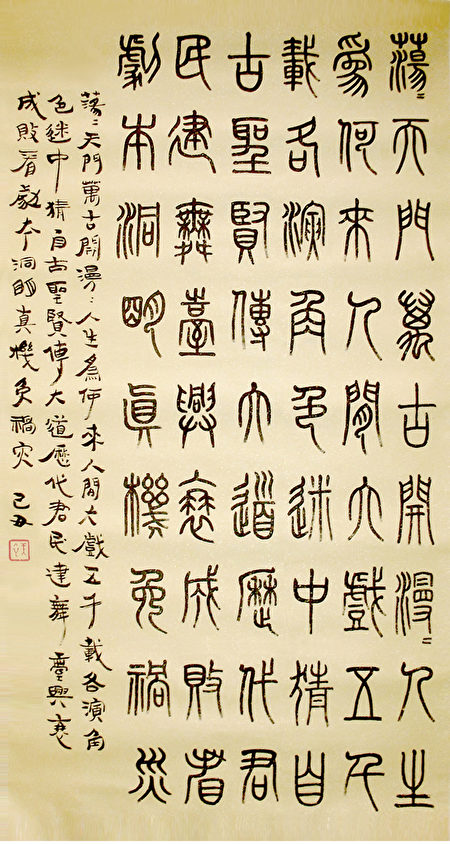 蕩〻天門萬古開漫〻人生
爲何來人間大戲五千
載各演角色迷中猜自
古聖賢傳大道歷代君
民建舞臺興衰成敗看
劇本洞明眞機免禍災
蕩〻天門萬古開漫〻人生爲何來人間大戲五千載各演角
色迷中猜自古聖賢傳大道歷代君民建舞臺興衰
成敗看劇本洞明真機免禍灾 己丑